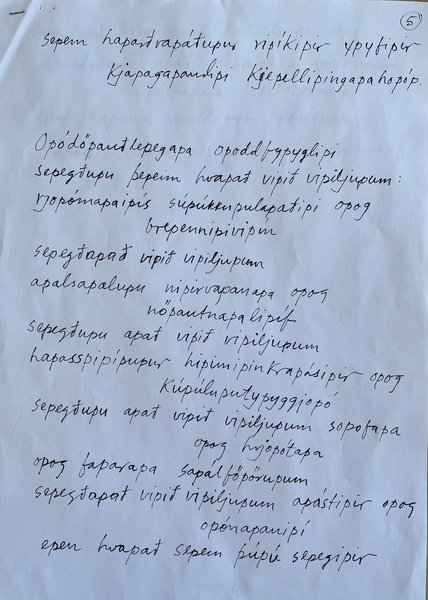 5
sepem haparðrapáðupur ripíkipir ypyfipir
kjapagapandipi kjepellipingapahopóp.
Opódöpauðlepegapa opoddfypyglipi
sepegðupu þepeim hvapað vipið vipiljupum:
rjopómapaipís súpúkkupulapaðipi opog
brepennipivipín
sepegðapað vipið vipiljupum
apalsapalupu nipirvapanapa opog
nöpautnapalipíf
sepegðupu apað vipið vipiljupum
hapasspipípupur hipimipinkrapásipir opog
Kúpúluputypyggjopó
sepegðupu apað vipið vipiljupum sopofapa
opog hrjopótapa
opog faparapa sapálföpörupum
sepegðapað vipið vipiljupum apástipir opog
opónapanipí
epen hvapað sepem þúpú sepegipir